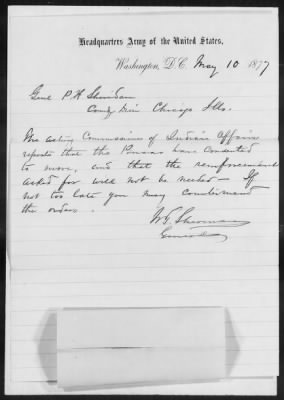 Headquarters Army of the United States,
Washington, D.C. May 10 1877
Genl P. H. Sheridan
Comdg Div Chicago Ills.
The acting Commissioner of Indian Affairs
reports that the Poncas have consented
to move, and that the reinforcements
asked for will not be needed — If
not too late you may countermand
the orders.
W. T. Sherman
General